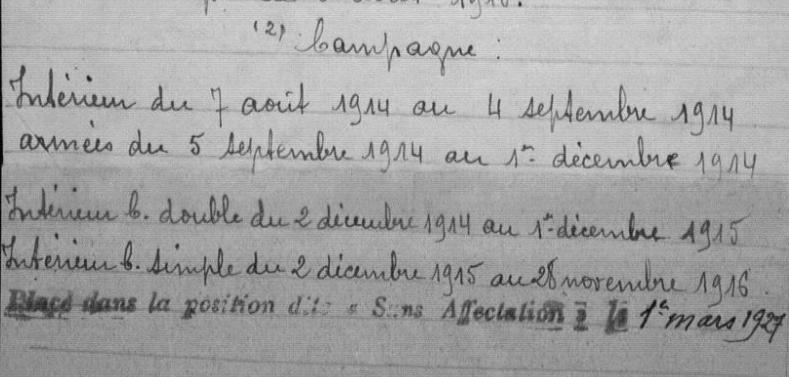 1916.
(2) Campagne :
Intérieur du 7 août 1914 au 4 septembre 1914
armées du 5 septembre 1914 au 1er décembre 1914
Intérieur C. double du 2 décembre 1914 au 1er décembre 1915
Intérieur C. simple du 2 décembre 1915 au 28 novembre 1916.
Placé dans la position dite « Sans Affectation » le 1er mars 1927